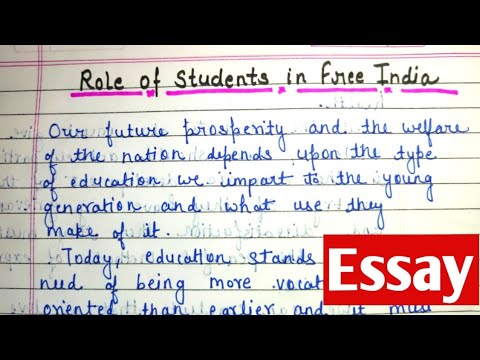 Role of Students in Free India
Our future prosperity and the welfare
of the nation depends upon the type
of education we impart to the young
generation and what use they
make of it.
Today, education stands
need of being more vocat
oriented than earlier and it must
Essay